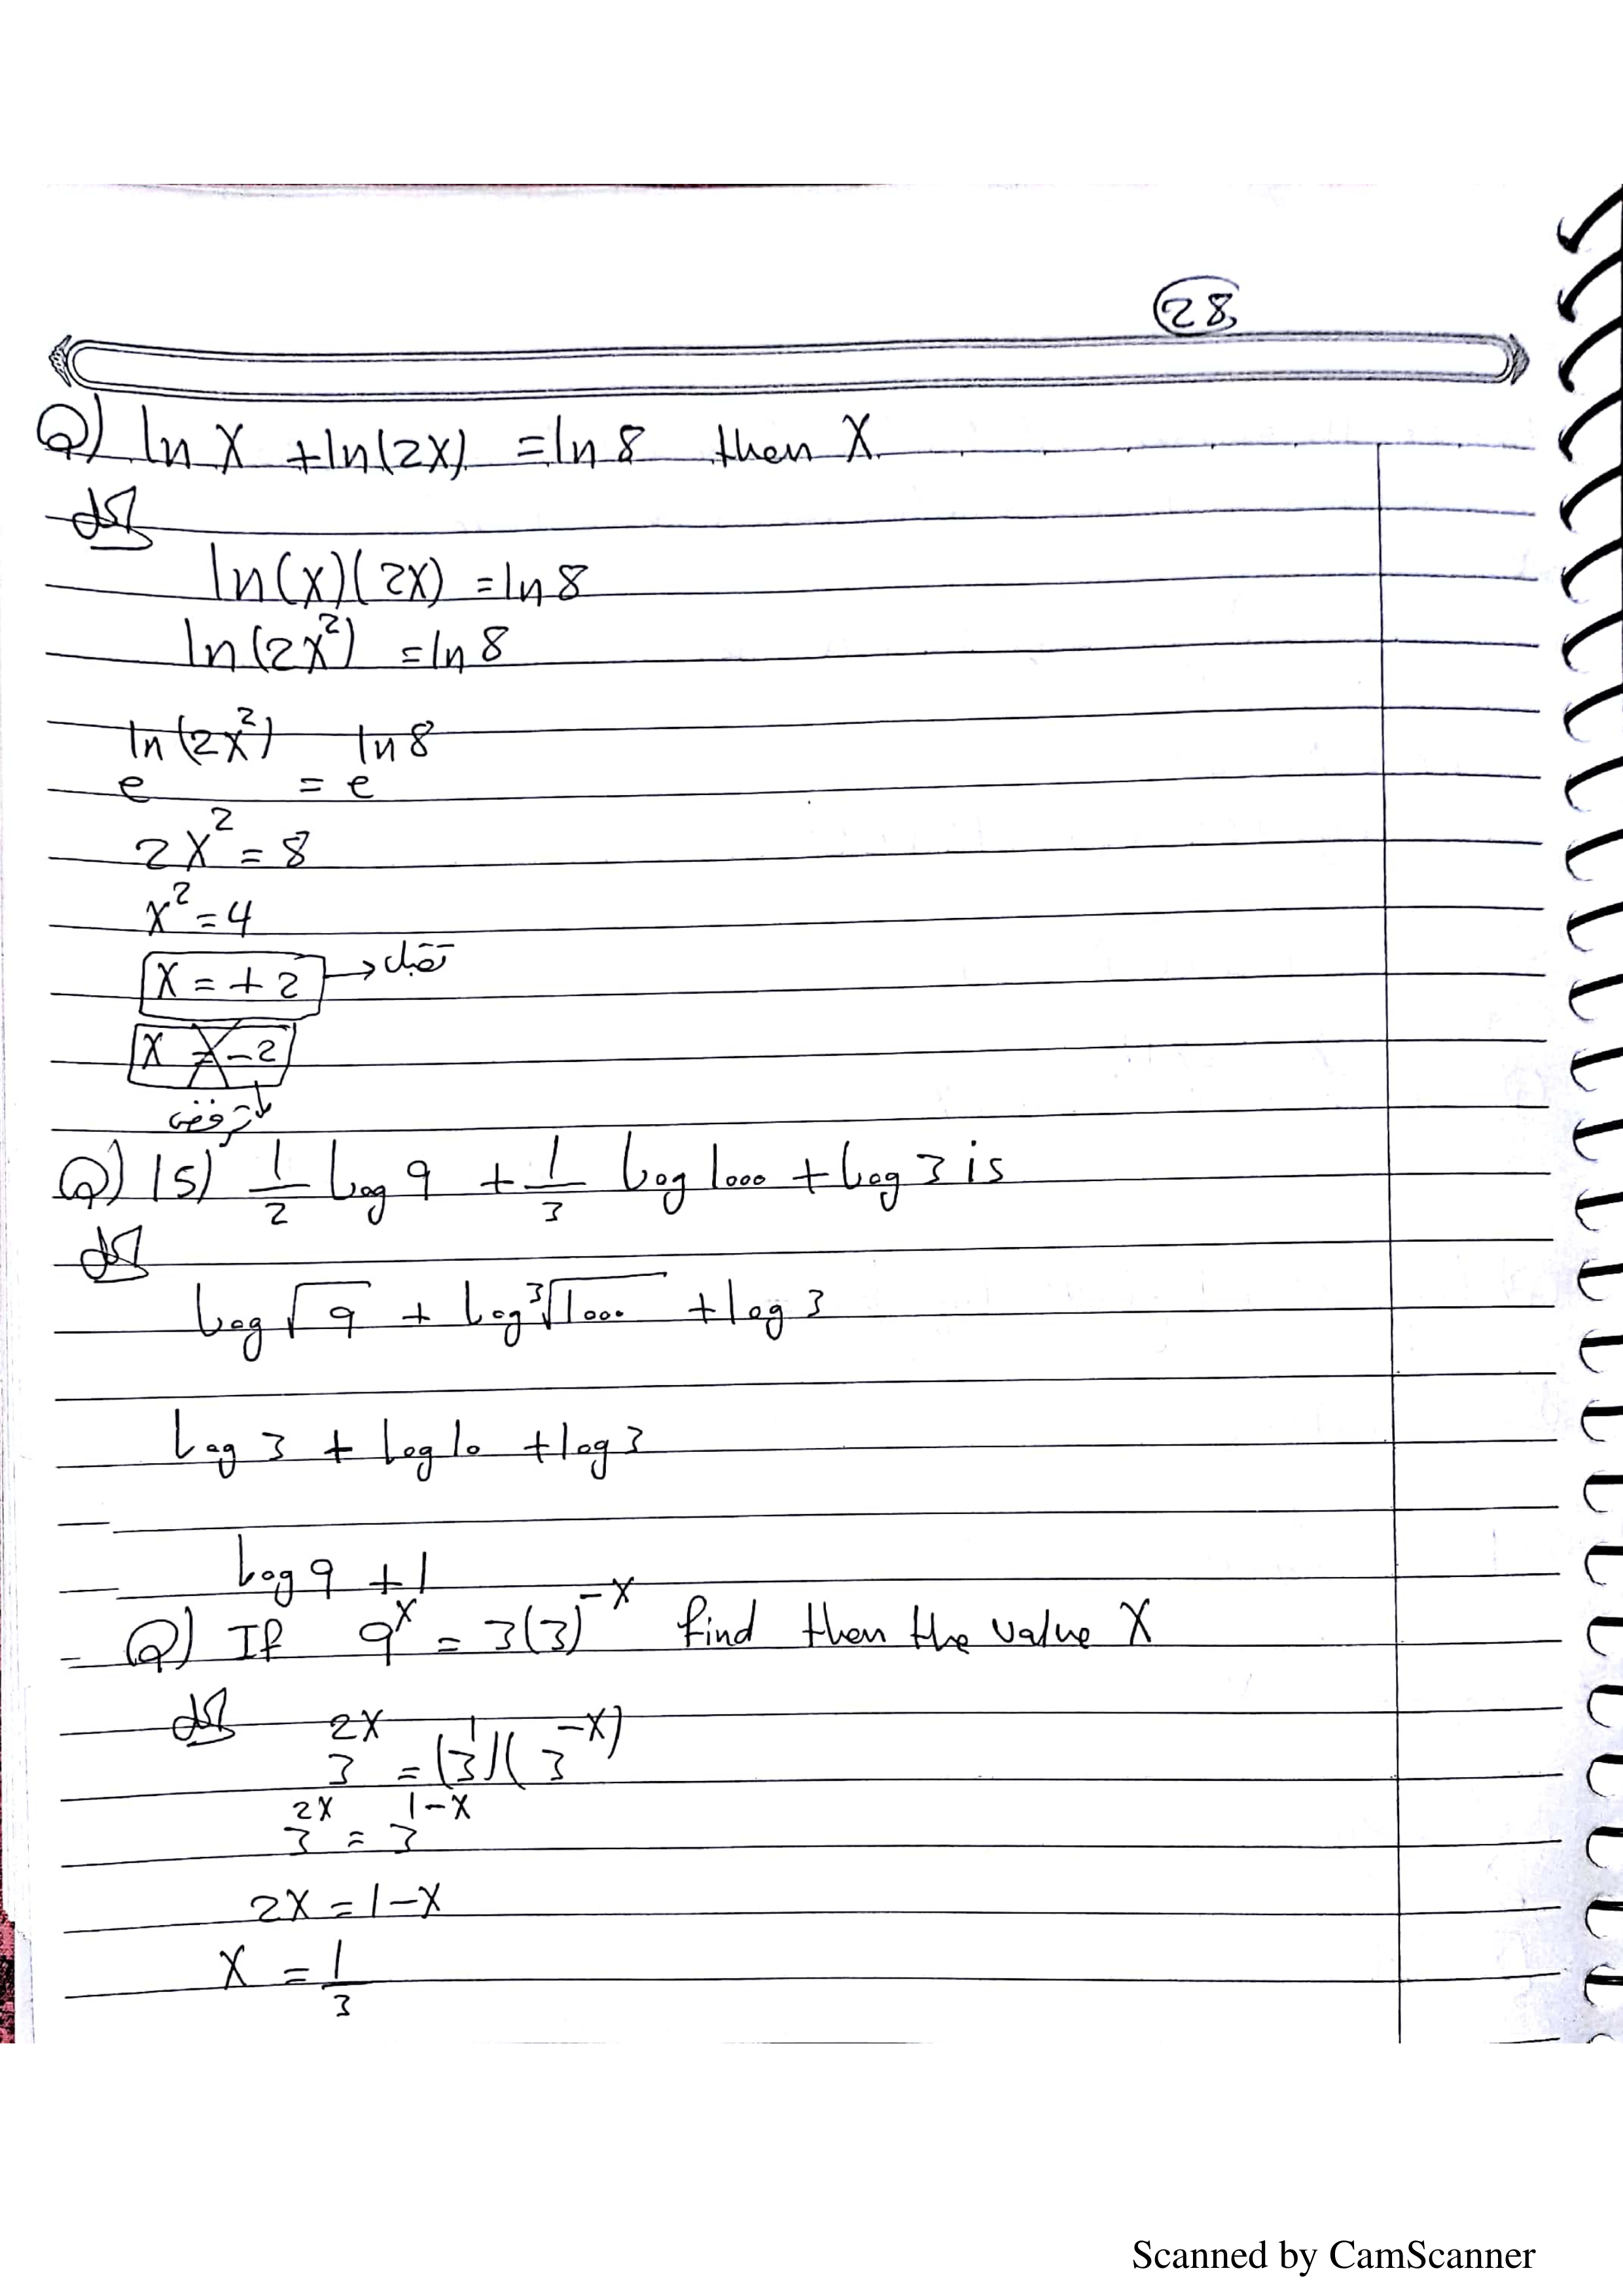 28
Q) ln X + ln(2X) = ln 8 then X
الحل
ln(x)(2x) = ln 8
ln(2x²) = ln 8
e^(ln(2x²)) = e^(ln 8)
2X² = 8
x² = 4
X = + 2 → تقبل
X = -2
ترفض
Q) 15) 1/2 log 9 + 1/3 log 1000 + log 3 is
الحل
log √9 + log ³√1000 + log 3
log 3 + log 10 + log 3
log 9 + 1
Q) If 9^x = 3(3)^-x find then the value X
الحل
3^2x = (3^1)(3^-x)
3^2x = 3^1-x
2X = 1-X
X = 1/3
Scanned by CamScanner